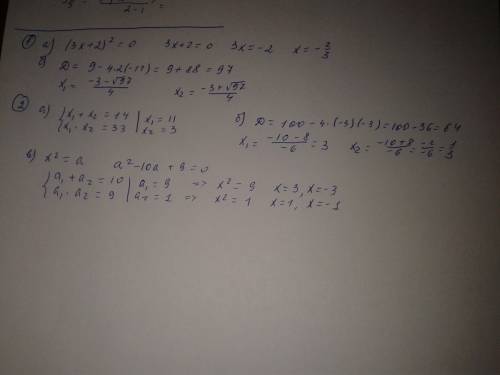 2-1 =
① а) (3x+2)² = 0 3x+2=0 3x=-2 x=-2/3
б) D = 9-4·2(-11) = 9+88 = 97
x₁ = (-3-√97)/4 x₂ = (-3+√97)/4
② а) { x₁+x₂ = 14 | x₁ = 11
{ x₁·x₂ = 33 | x₂ = 3
б) D = 100-4·(-3)(-3) = 100-36 = 64
x₁ = (-10-8)/-6 = 3 x₂ = (-10+8)/-6 = -2/-6 = 1/3
в) x² = a a²-10a+9=0
{ a₁+a₂ = 10 | a₁ = 9 => x² = 9 x=3, x=-3
{ a₁·a₂ = 9 | a₂ = 1 => x² = 1 x=1, x=-1